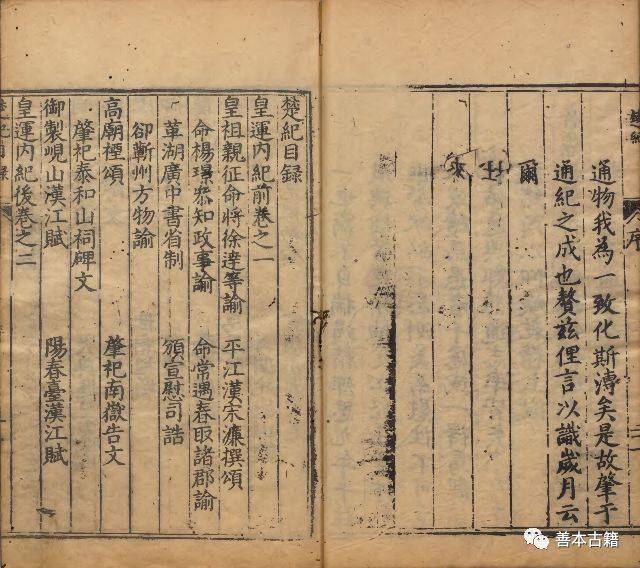 楚紀
序
二
通物我為一致化斯溥矣是故肇于
通紀之成也贊茲俚言以識歲月云
爾
楚紀目録
皇運内紀前卷之一
皇祖親征命將徐達等諭 平江漢宋濂撰頌
命楊璟叅知政事諭 命常遇春取諸郡諭
革湖廣中書省制 頒宣慰司誥
卻蘄州方物諭
高廟禋頌 肇祀南嶽告文
肇祀泰和山祠碑文
御製峴山漢江賦 陽春臺漢江賦
皇運内紀後卷之二
善本古籍